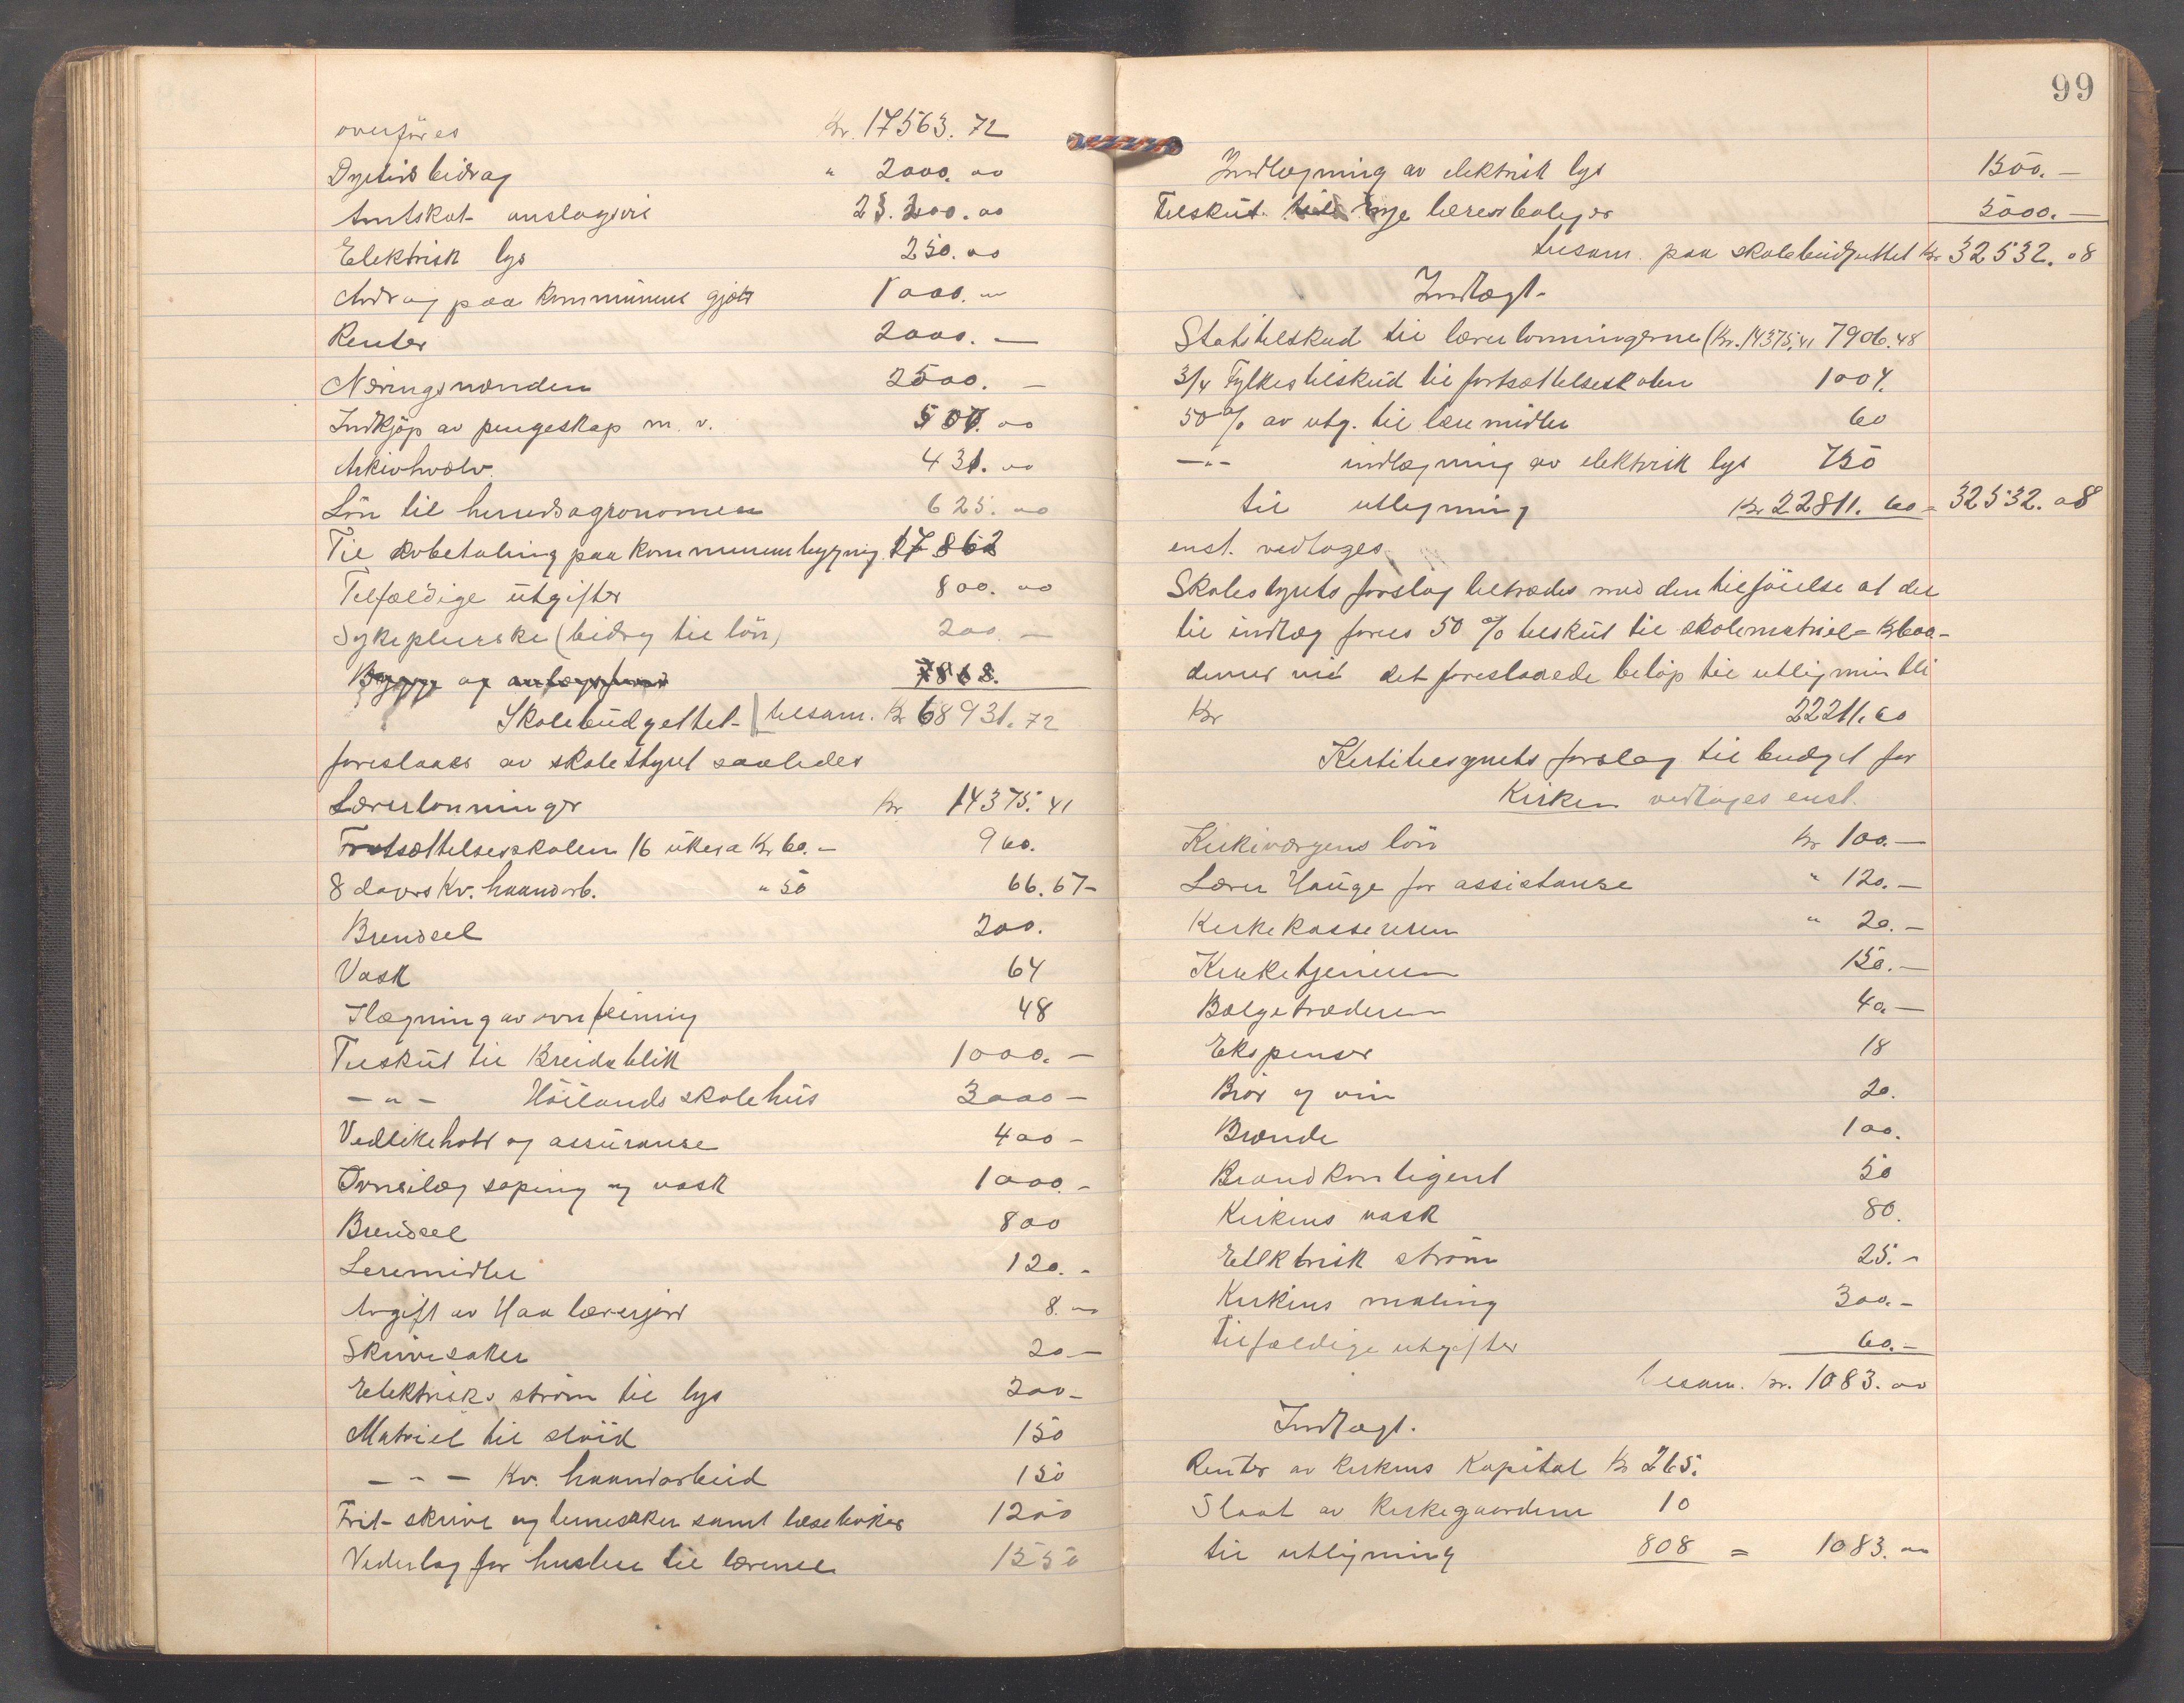 overføres Kr. 17563.72
Dyrtidsbidrag " 2000.00
Amtskat anslagsvis 23.200.00
Elektrisk lys 250.00
Avdrag paa kommunens gjæld 1000.00
Renter 2000. —
Næringsnænden 2500. —
Indkjøp av pengeskap m. v. 507.00
Arkivhvælv. 431.00
Løn til herredsagronomen 625.00
Til avbetaling paa kommunenbygnig 17862
Tilfældige utgifter 800.00
Sykepleierske (bidrag til løn) 200. —
Bygge og anlægsfond 7868.
Skolebudgettet tilsam. Kr 68931.72
foreslaaes av skolestyret saaledes
Lærerlønninger Kr 14375.41
Fortsættelsesskolen 16 uker a Kr 60.- 960.
8 dages Kv. haandarb. " 50 66.67-
Brendsel 200.
Vask 64
Ilægning av ovn feining 48
Tilskut til Breidablik 1000. -
- " - Høilands skolehus 3000 -
Vedlikehold og assuranse 400 -
Ovnsilæg soping og vask 1000. -
Brendsel 800
Leremidler 120. -
Avgift av Haa lærerjord 8. 00
Skrivesaker 20 -
Elektrisk strøm til lys 200-
Matriel til sløid 150
- " - Kv. haandarbeid 150
Frit- skrive og tegnesaker samt læsebøker 1200
Vederlag for husleie til lærerne 1550
99
Indlægning av elektrisk lys 1500. -
Tilskut til nye lærerboliger 5000. -
tilsam. paa skolebudgettet Kr 32532.08
Indtægt-
Statstilskud til lærerlønningerne (Kr. 14375,41 7906.48
3/4 Fylkestilskud til fortsættelseskolen 1004.
50 % av utg. til læremidler 60
- " - indlægning av elektrisk lys 750
til utligning Kr 22811.60 = 32532.08
enst. vedtages.
Skolestyrets forslag tiltrædes med den tilføielse at der
til indtæg føres 50 % tilskut til skolematriel = Kr 600-
derved vil det foreslaaede beløp til utligning bli
Kr 22211.60
Kirketilsynets forslag til budget for
Kirken vedtages enst.
Kirkeværgens løn Kr 100. —
Lærer Hauge for assistanse " 120. —
Kirkekassereren " 20. —
Kirketjeneren 150. —
Bælgetræderen 40 —
Ekspenser 18
Brød og vin 20.
Brænde 100.
Brandkontigent 50
Kirkens vask 80.
Ellktrisk strøm 25. -
Kirkens maling 300. -
Tilfældige utgifter 60. -
tilsam. Kr. 1083.00
Indtægt.
Renter av kirkens Kapital Kr 265.
Slaat av kirkegaarden 10
til utligning 808 = 1083.00